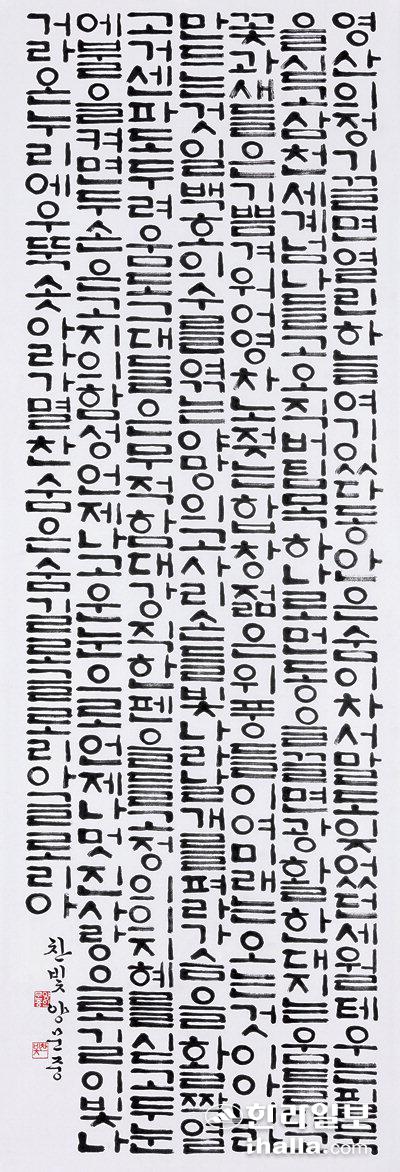 영산의정기끌면열린하늘역있다동안은숨이차서말도잊었던세월테우는펄
을실고삼천세계넘나들고오직벌목하나로먼동을끌면광활한대지는우
꽃과새들은기쁨겨워어영차노젖는합창젊은위병들이여미래는오는것이아
만드는것일백호의수를엮는야망의고사리손들빛나라날개를펴라가슴을활짝열
고거센파도두려움도그대들은무적함대강직한펜을들고정의의지혜를실고두눈
에불을켜면두손은고지의함성언제나고운눈으로언제나멋진사랑으로길이빛나
거라온누리에우뚝솟아라가멸찬숨은숨길
찬빛 양
한라일보
ihalla.com